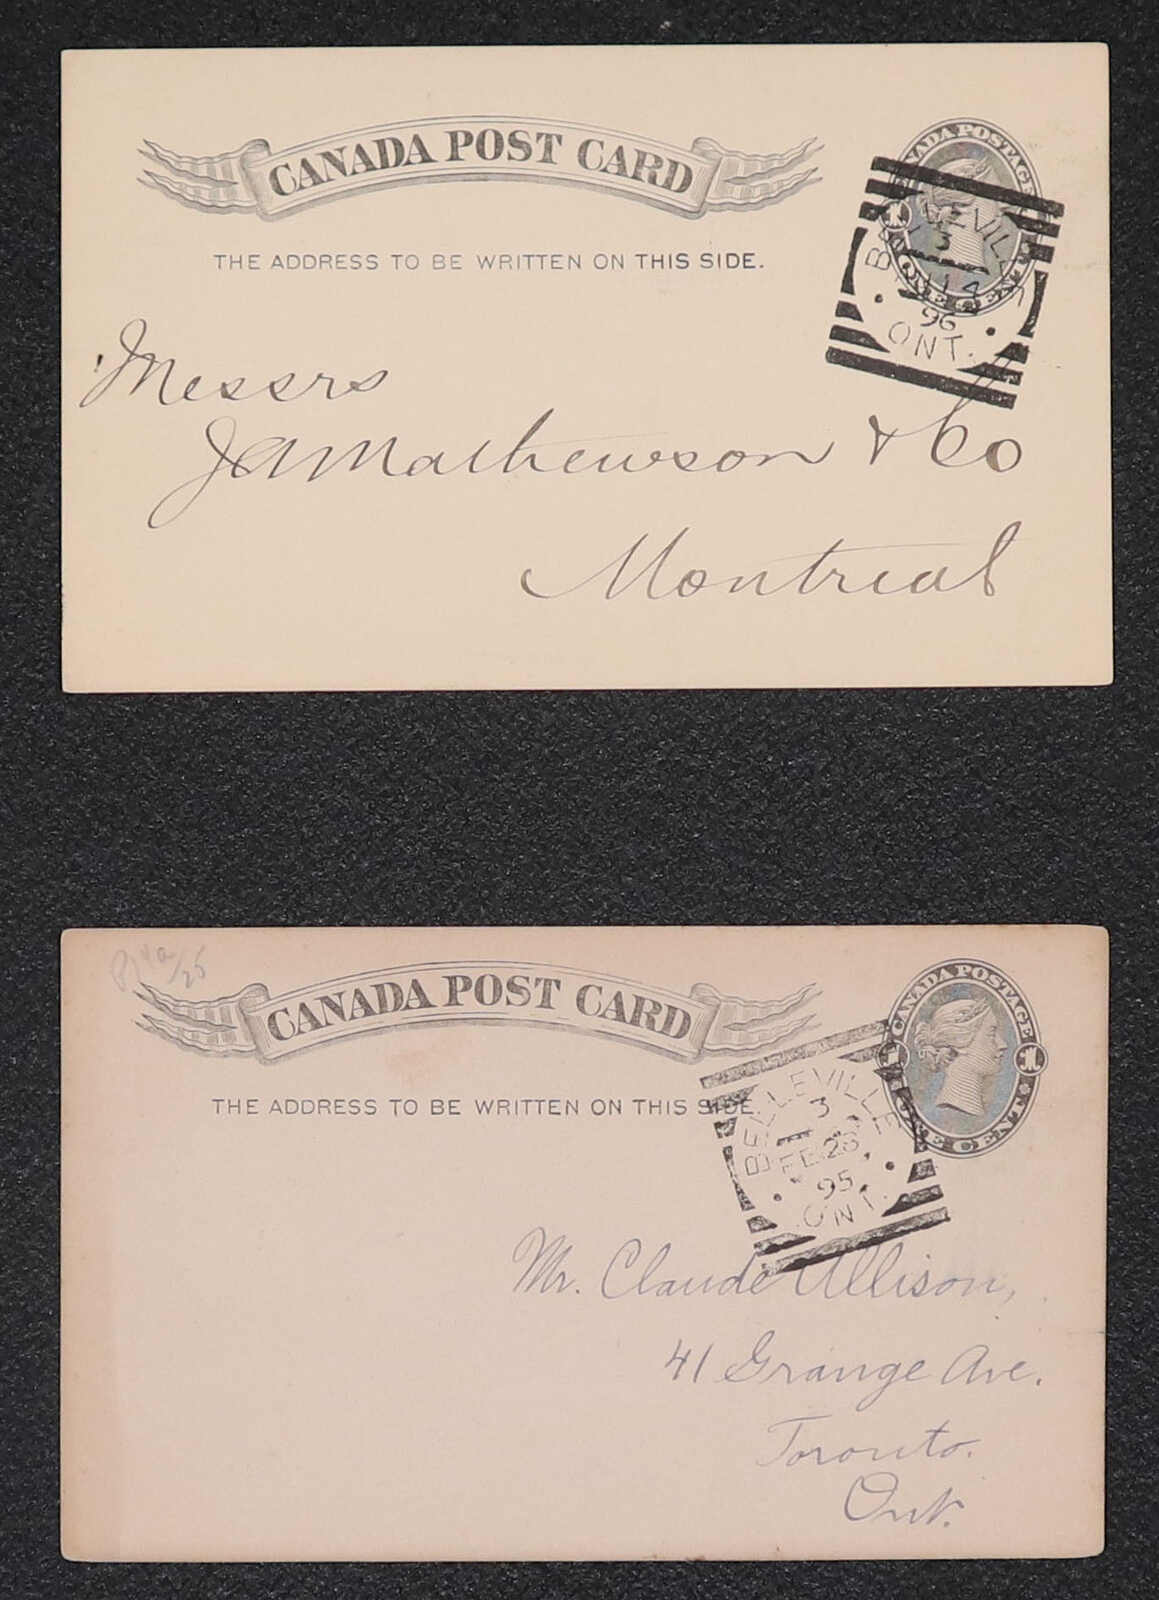 CANADA POST CARD
THE ADDRESS TO BE WRITTEN ON THIS SIDE.
CANADA POSTAGE
1
ONE CENT
BELLEVILLE
3
14
96
ONT.
Messrs
JA Mathewson & Co
Montreal
25
CANADA POST CARD
THE ADDRESS TO BE WRITTEN ON THIS SIDE.
CANADA POSTAGE
1 1
ONE CENT
BELLEVILLE
3
FE 23
95
ONT.
Mr. Claude Allison,
41 Grange Ave.
Toronto.
Ont.